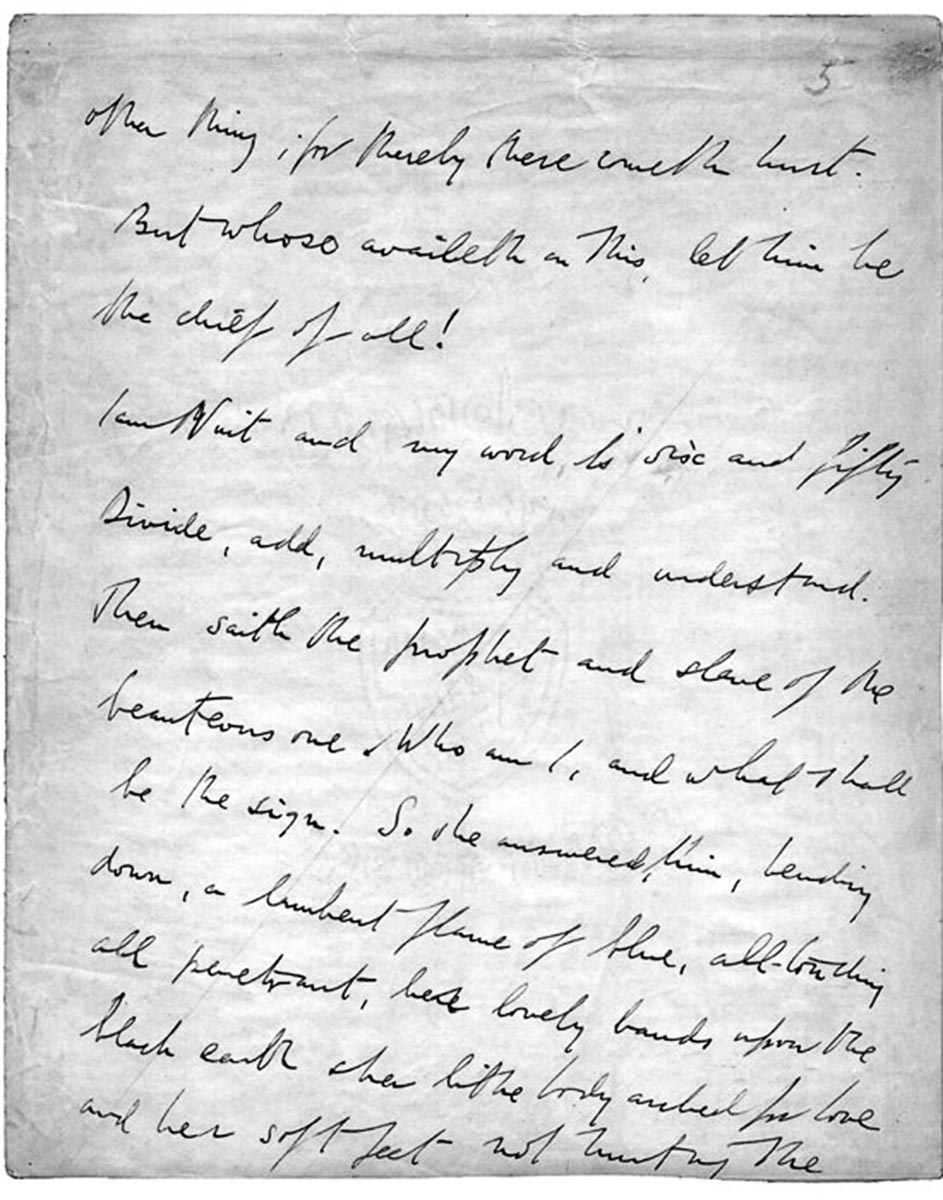 5
other thing; for thereby there cometh hurt.
But whoso availeth in this, let him be
the chief of all!
I am Nuit and my word is six and fifty
Divide, add, multiply and understand.
Then saith the prophet and slave of the
beauteous one. Who am I, and what shall
be the sign. So she answered him, bending
down, a lambent flame of blue, all-touching
all penetrant, her lovely hands upon the
black earth & her lithe body arched for love
and her soft feet not hurting the